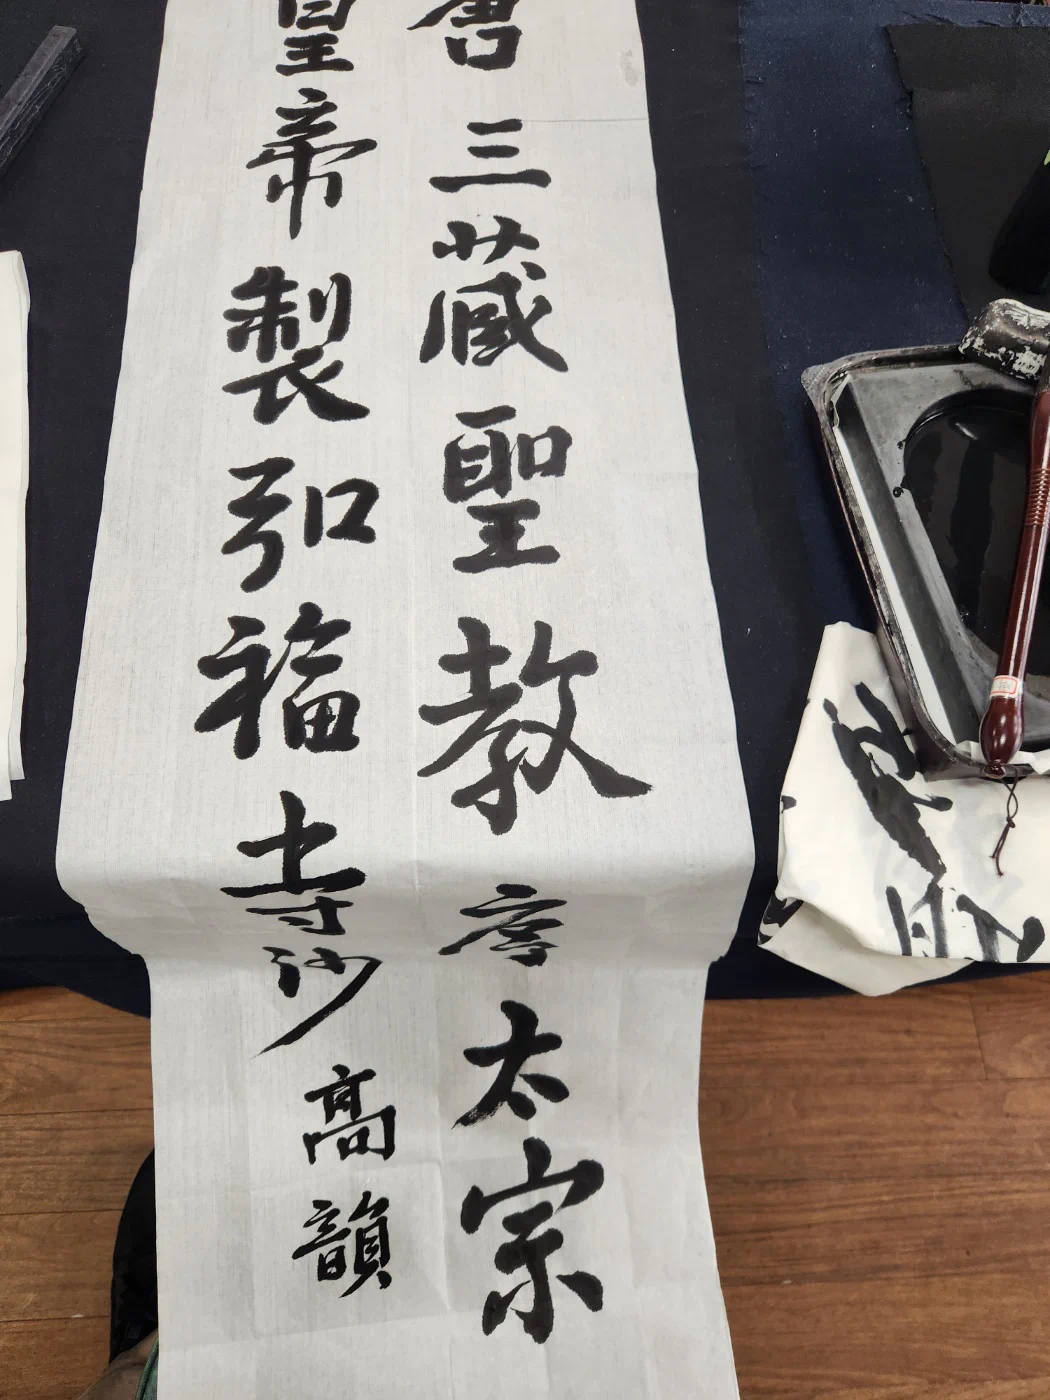 唐三藏聖教唐太宗
皇帝製弘福寺沙
高韻